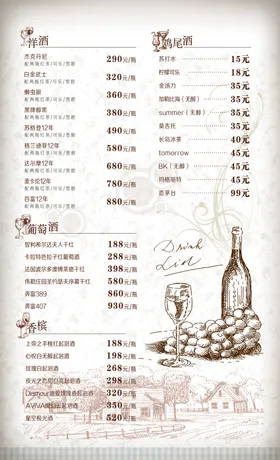 洋酒
杰克丹尼 290元/瓶
配两瓶红茶/可乐/雪碧
白金武士 320元/瓶
配两瓶红茶/可乐/雪碧
懒虫银 360元/瓶
配两瓶红茶/可乐/雪碧
黑牌醇黑 380元/瓶
配两瓶红茶/可乐/雪碧
苏格登12年 490元/瓶
配两瓶红茶/可乐/雪碧
格兰迪菲12年 580元/瓶
配两瓶红茶/可乐/雪碧
达尔摩12年 680元/瓶
配两瓶红茶/可乐/雪碧
麦卡伦12年 780元/瓶
配两瓶红茶/可乐/雪碧
百富12年 880元/瓶
配两瓶红茶/可乐/雪碧
葡萄酒
智利希尔达夫人干红 188元/瓶
卡拉特色拉子干红葡萄酒 288元/瓶
法国波尔多澳博莱德干红 398元/瓶
伟勒庄园圣约瑟夫序幕干红 580元/瓶
奔富389 860元/瓶
奔富407 930元/瓶
香槟
上帝之手桃红起泡酒 188元/瓶
心悦白无醇起泡酒 198元/瓶
玫瑰白起泡酒 268元/瓶
夜光之恋甜白高起泡酒 298元/瓶
320元/瓶
350元/瓶
星空极光酒 520元/瓶
鸡尾酒
苏打水 15元
柠檬可乐 18元
金汤力 35元
加勒比海（无醇） 35元
summer（无醇） 35元
莫吉托 35元
长岛冰茶 40元
tomorrow 45元
BK（无醇） 45元
玛格丽特 45元
恋茅台 99元
Drink
List